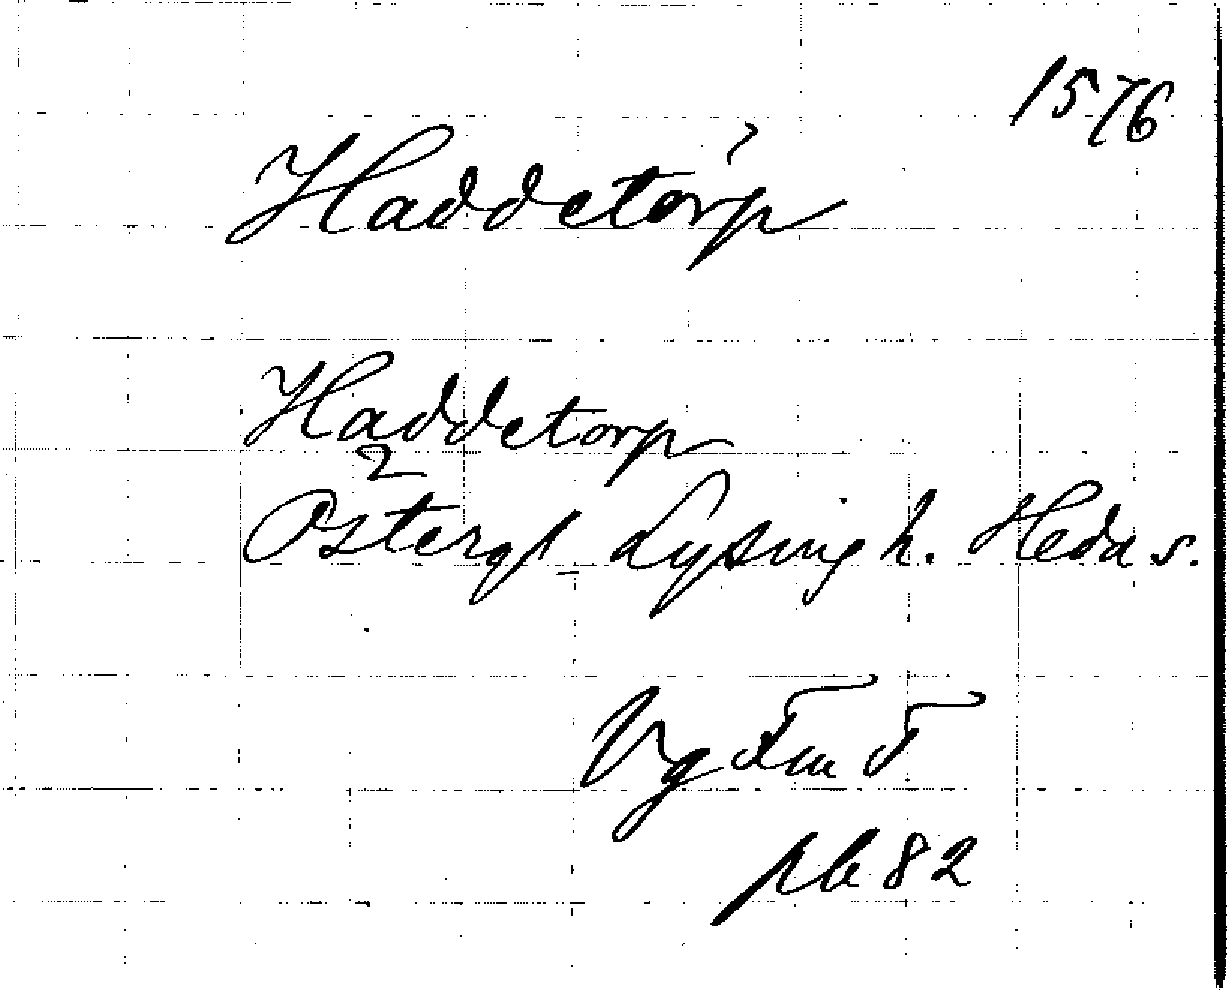 1576
Haddetorp
Haddetorp
2
Östergl Lysing h. Heda s.
Vg Fm F
pb 82